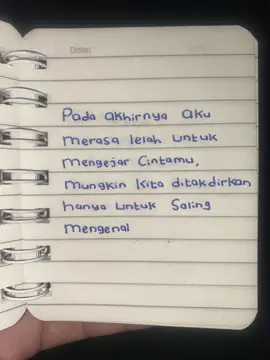 Date:
Pada akhirnya aku
merasa lelah untuk
mengejar Cintamu,
mungkin kita ditakdirkan
hanya untuk Saling
mengenal